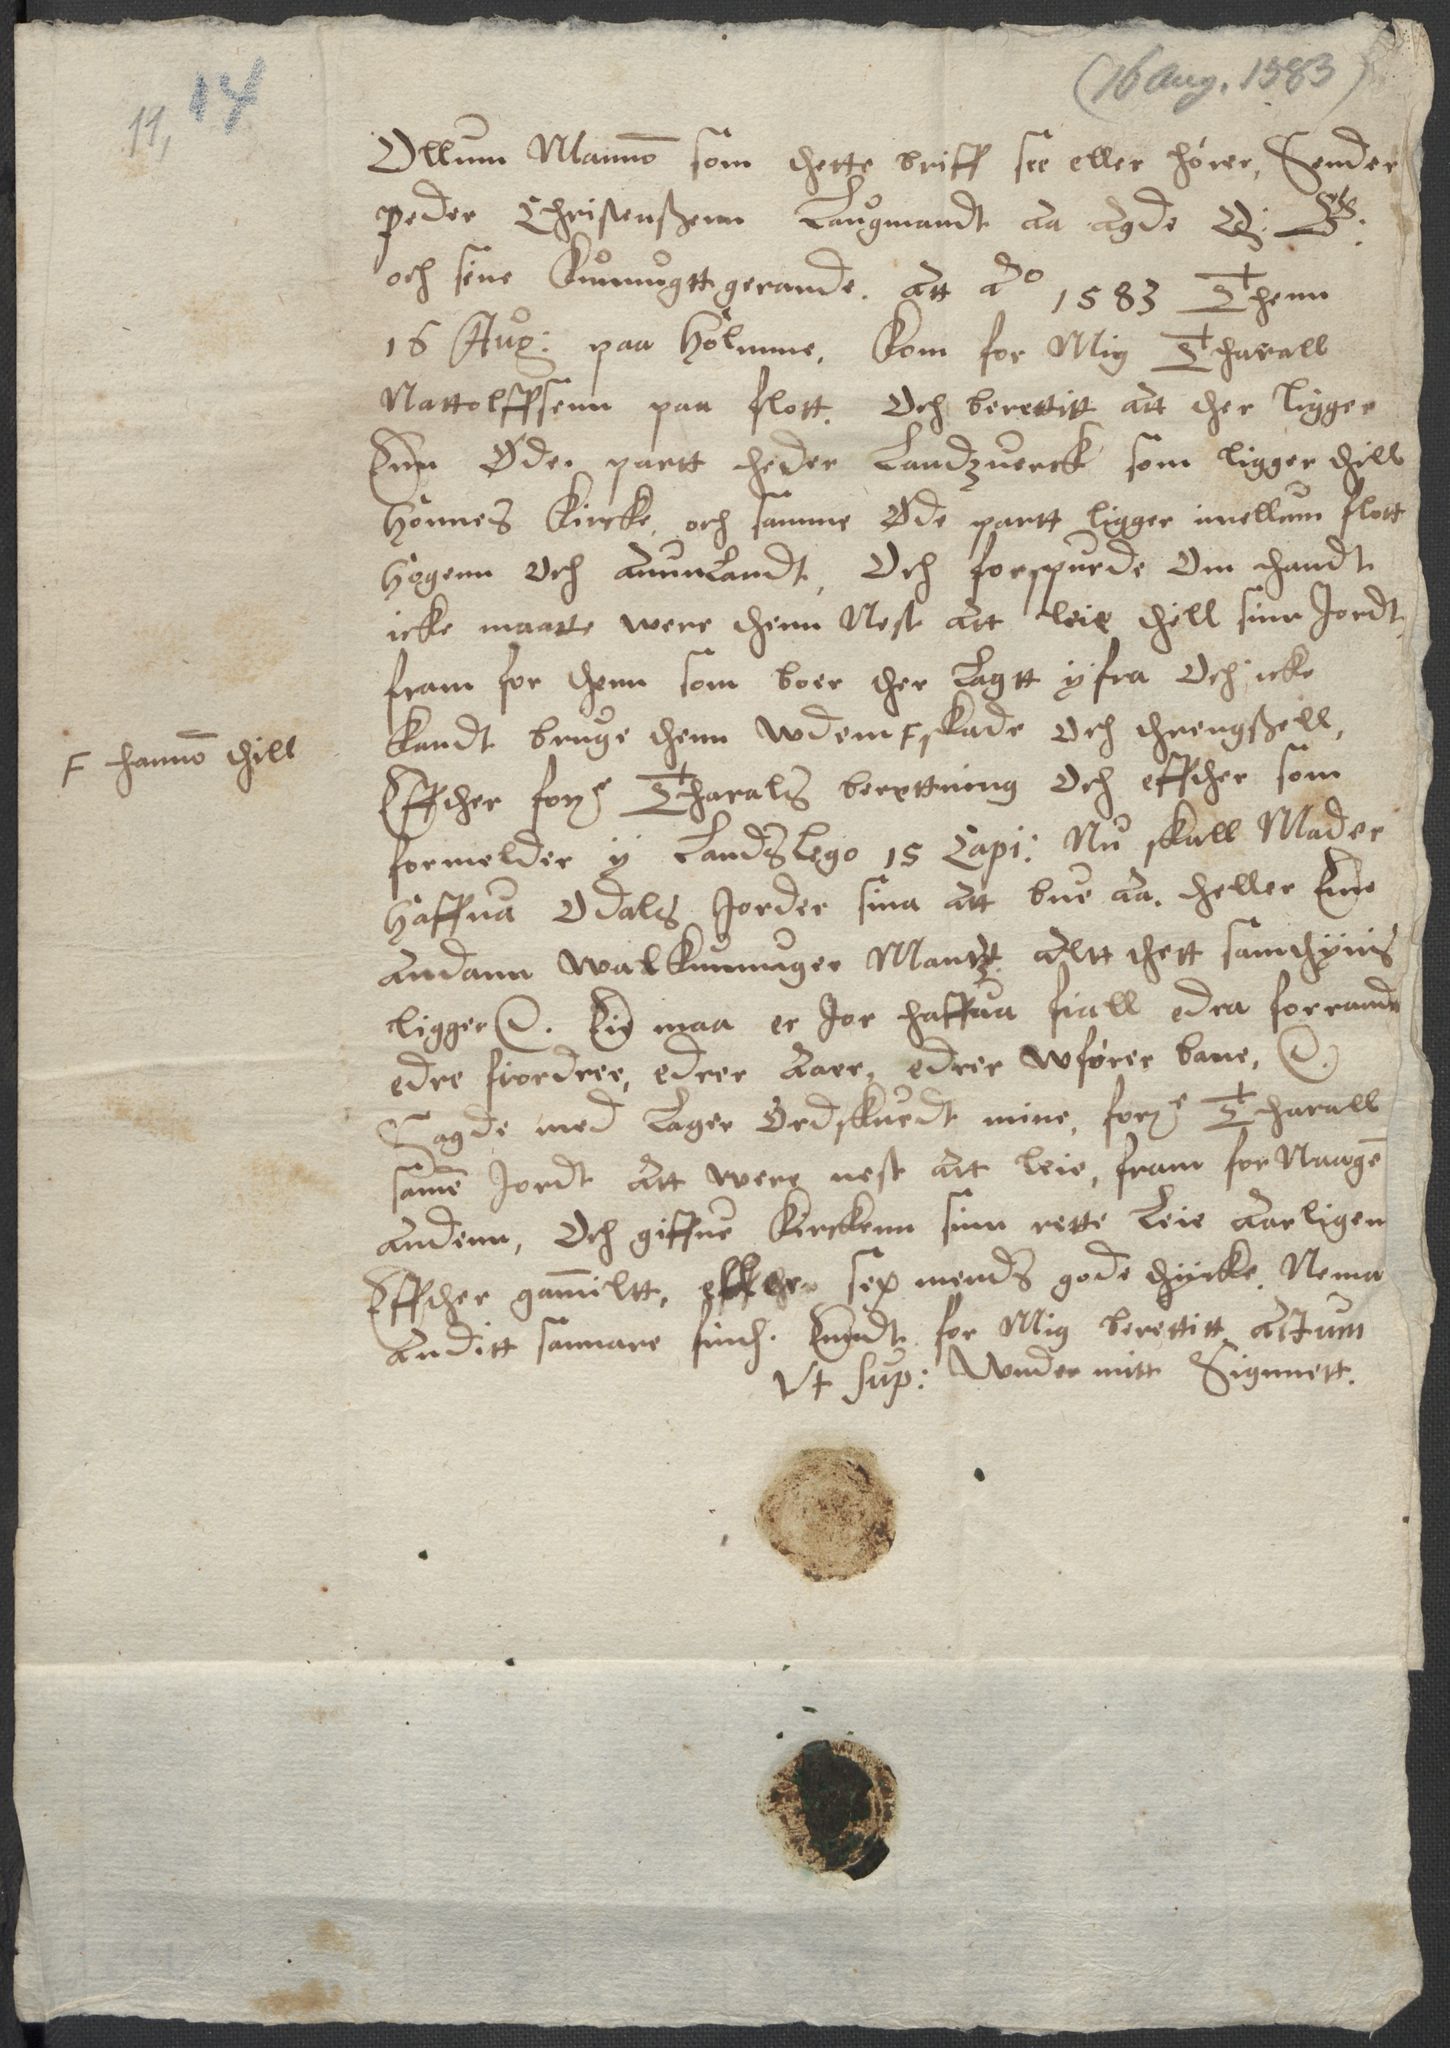 (16 Aug. 1583)
14
11,
Ollum Mannō som thette briff see eller hører, Sender
Peder Christenßenn Laugmandt aa Agde Q: G:
och sine kunnugtt gerande. Att Aº 1583 Thenn
16 Aug: paa Holmme, kom for Mig Tharall
Nattolffsenn paa flott. Och berettitt att ther ligger
Enn Øde. partt heder Landzuerck som ligger thill
Hønnes kircke, och samme Øde partt ligger imellum flott
Høgenn och AunnLandt, Och forspurde om handt
icke maatte were thenn Nest att leie thill sinn Jordt,
fram for thenn som boer ther Lagtt ÿfra Och icke
kandt bruge thenn wdenn F skade och threngßell,
F hannō thill
Effther forne Tharals berettning Och effther som
formelder ÿ Landslego 15 Capi: Nu skall Mader
Haffua Odals Jorder sina att bue aa. heller Enne
andann walkunnuger Mantz. altt thett samthÿnis
ligger &. Eie maa er Jor haffua fiall edra forrande
edre fiordree, edrer Aaer, edrer wfører bane, &.
Sagde med Lager Ordskuedt mine, forne Tharall
samē Jordt att were nest att leie, fram for Naagē
andenn, Och giffue kirckenn sinn rette Leie Aarligen
Effther gam̄iltt, effther sex mends gode thÿcke. Nema
anditt sannare sinth. Eendt for Mig berettitt Actum
Vt sup: Wnder mitt Signnett.